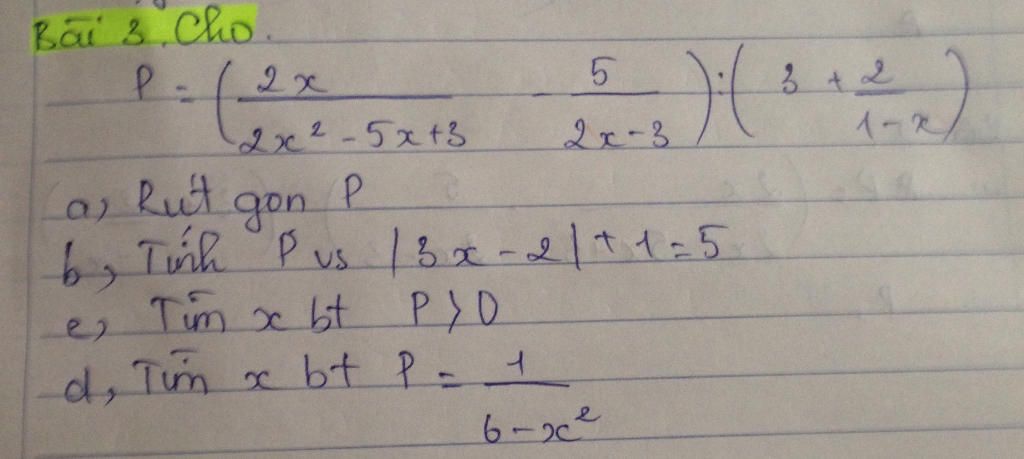 Bài 3. Cho.
P = (2x/(2x² - 5x + 3) - 5/(2x - 3)) : (3 + 2/(1 - x))
a, Rút gọn P
b, Tính P vs |3x - 2| + 1 = 5
c, Tìm x bt P > 0
d, Tìm x bt P = 1/(6 - x²)